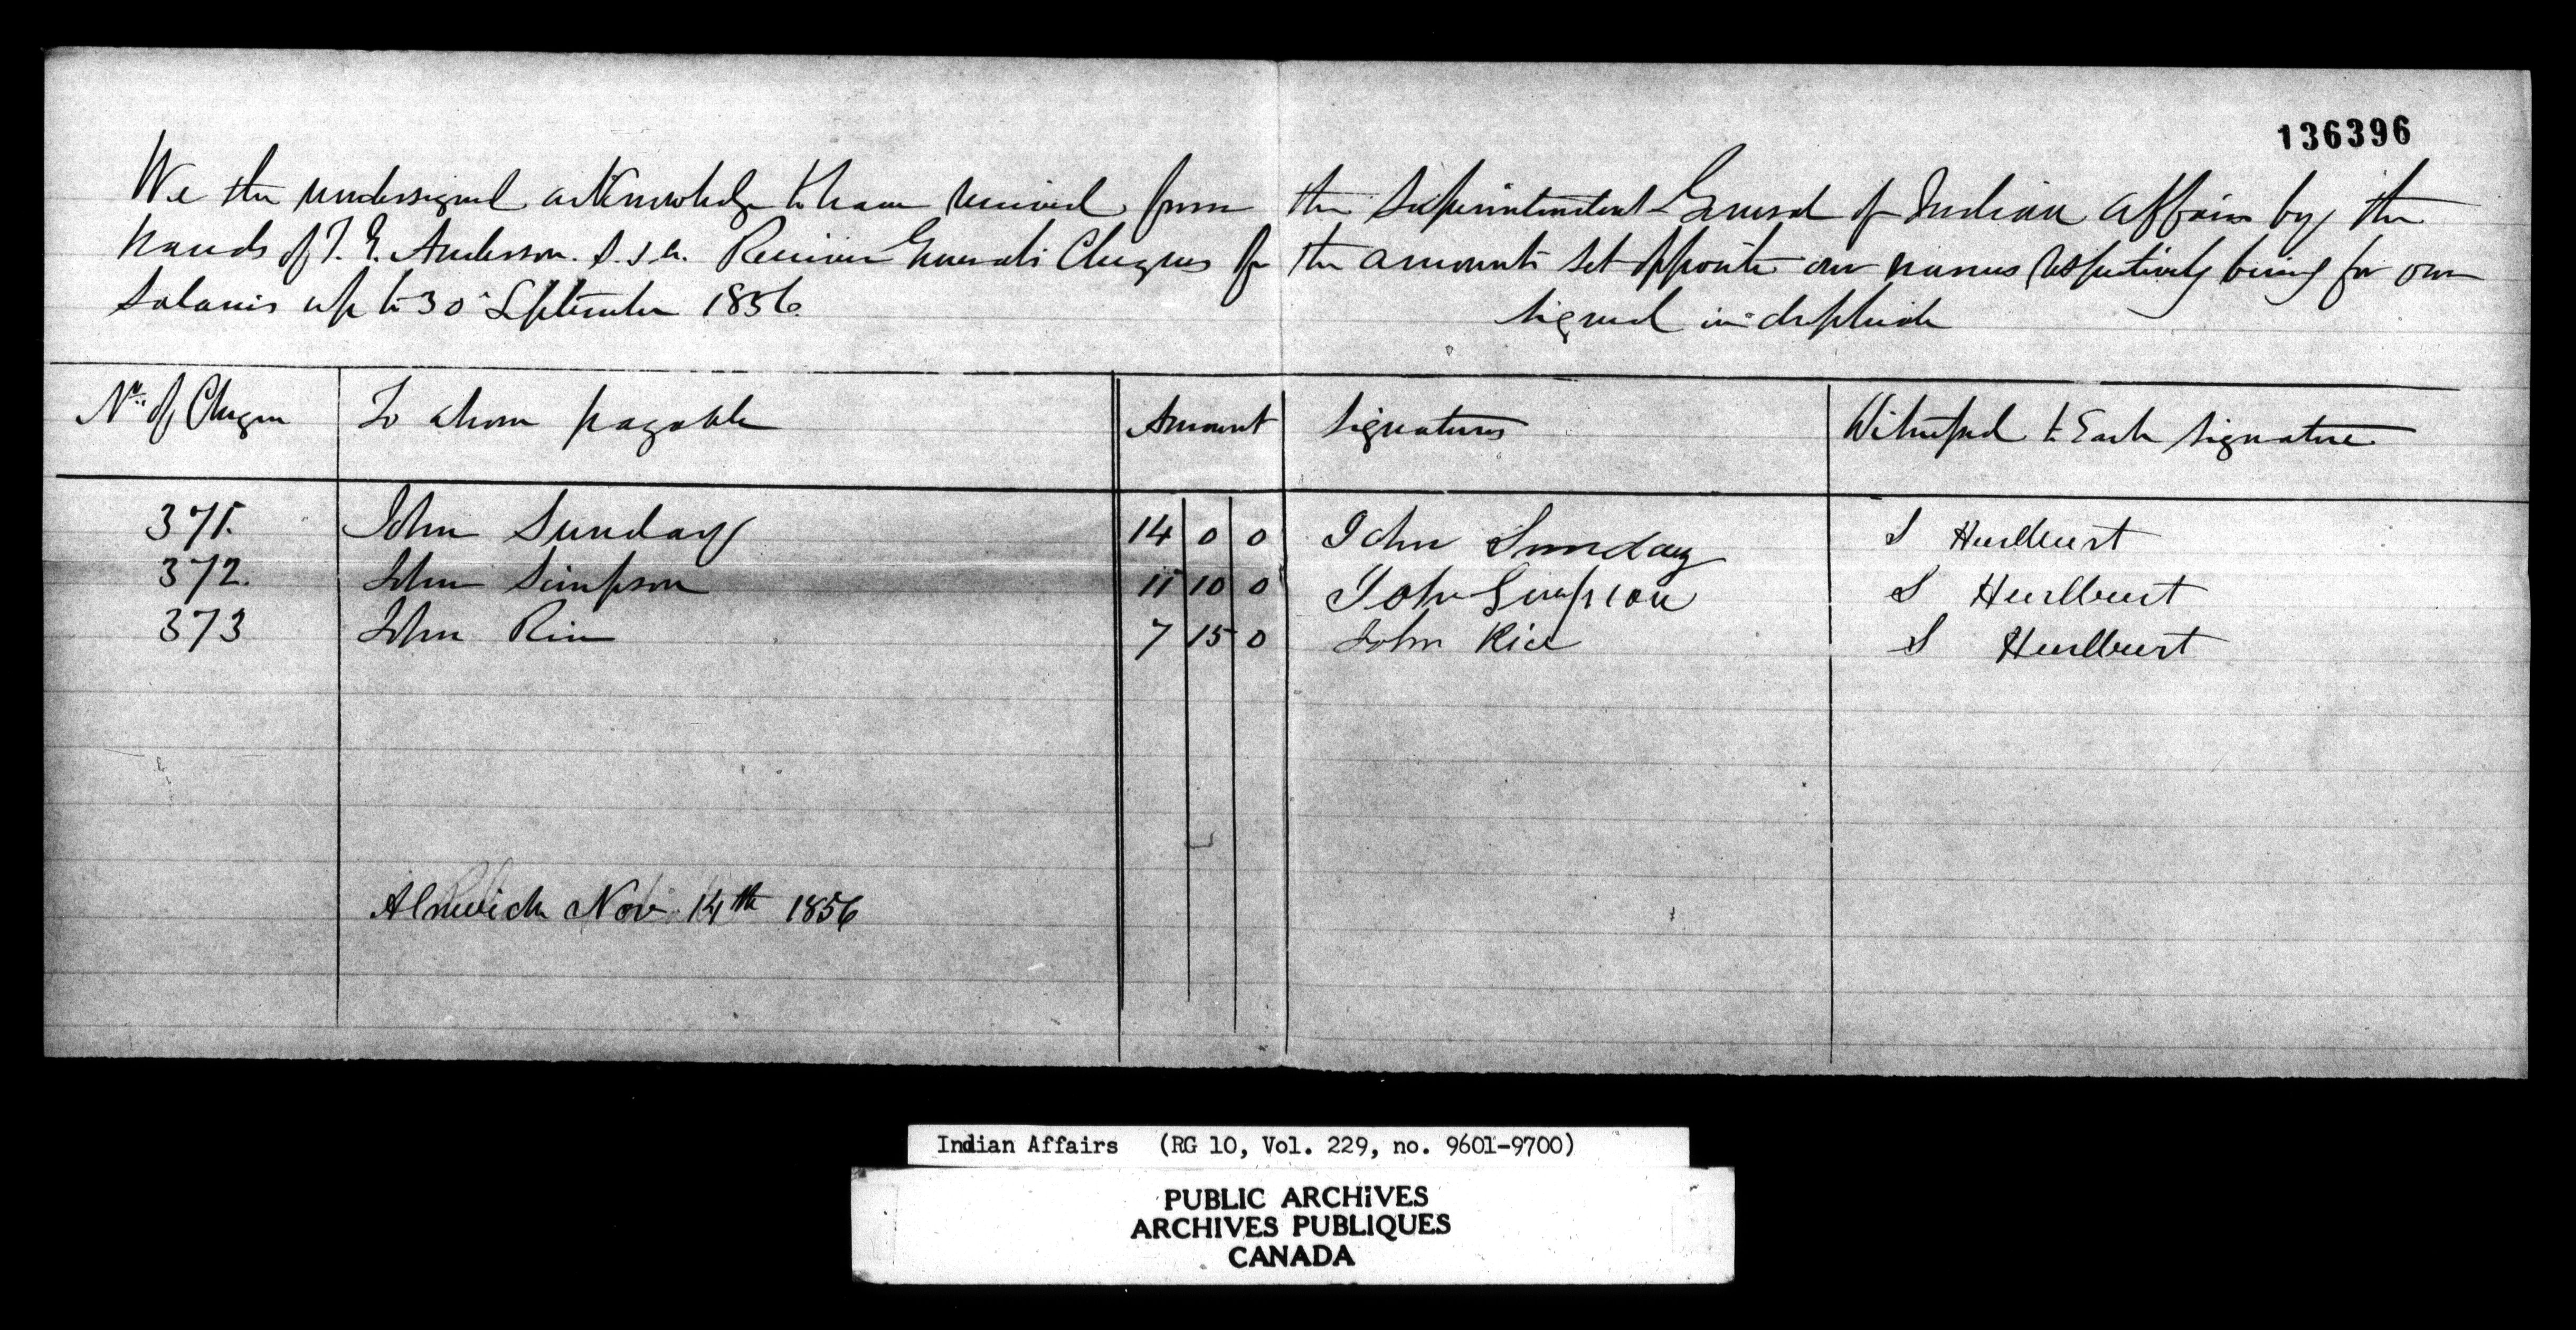 136396
We the undersigned acknowledge to have received from the Superintendent General of Indian Affairs by the
hands of T. G. Anderson. S. I. A. Receiver Generals Cheques for the amounts set opposite our names respectively being for our
Salaries up to 30th September 1856.
Signed in duplicate
No. of Cheque To whom payable Amount Signatures Witnessed to Each Signature
371. John Sunday 14 0 0 John Sunday S Hurlburt
372. John Simpson 11 10 0 John Simpson S Hurlburt
373 John Rice 7 15 0 John Rice S Hurlburt
Alnwick Nov 14th 1856
Indian Affairs (RG 10, Vol. 229, no. 9601-9700)
PUBLIC ARCHIVES
ARCHIVES PUBLIQUES
CANADA